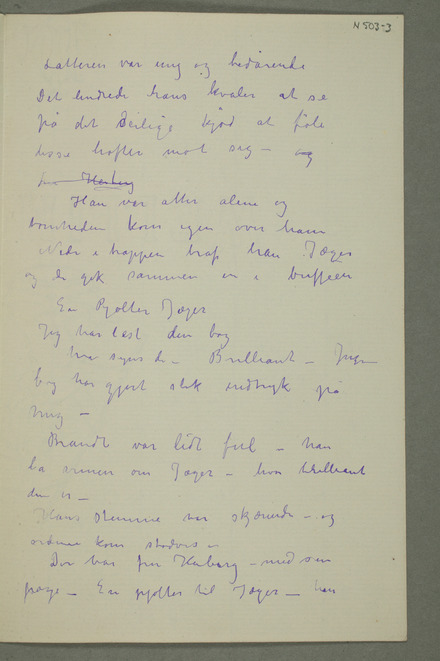 N 503-3
Latteren var ung og bedårende
Det lindrede hans kvaler at se
på det deilige kjød at føle
disse hofter mot sig – og
Herberg
Han var atter alene og
tomheden kom igen over ham
Nede i trappen traf han Jæger
og de gik sammen in i buffeen
En Pjolter Jæger
Jeg har læst din bog
hva synes De – Brilliant – Ingen
bog har gjort slik indtryk på
mig –
Brandt var lidt ful – han
armen om Jæger – hvor brilliant
den er –
Hans stemme var skjærende – og
ordene kom stødvis –
Der var fru Herberg – med sin
page – En pjolter til Jæger – han